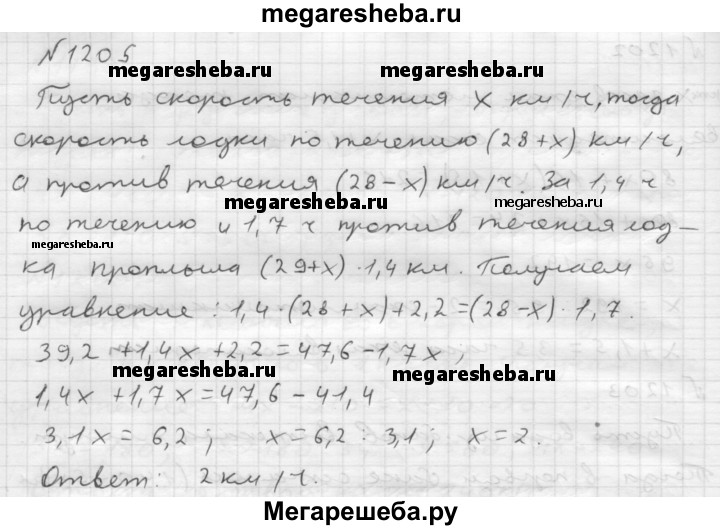 megaresheba.ru
N 1205
megaresheba.ru megaresheba.ru
Пусть скорость течения x км/ч, тогда
скорость лодки по течению (28+x) км/ч,
а против течения (28-x) км/ч. За 1,4 ч
megaresheba.ru megaresheba.ru
по течению и 1,7 ч против течения лод-
megaresheba.ru
ка проплыла (29+x) · 1,4 км. Получаем
уравнение: 1,4 · (28 + x) + 2,2 = (28-x) · 1,7.
39,2 + 1,4x + 2,2 = 47,6 - 1,7x;
megaresheba.ru megaresheba.ru
1,4x + 1,7x = 47,6 - 41,4
3,1x = 6,2; x = 6,2 : 3,1; x = 2.
Ответ: 2 км/ч.
Мегарешеба.ру